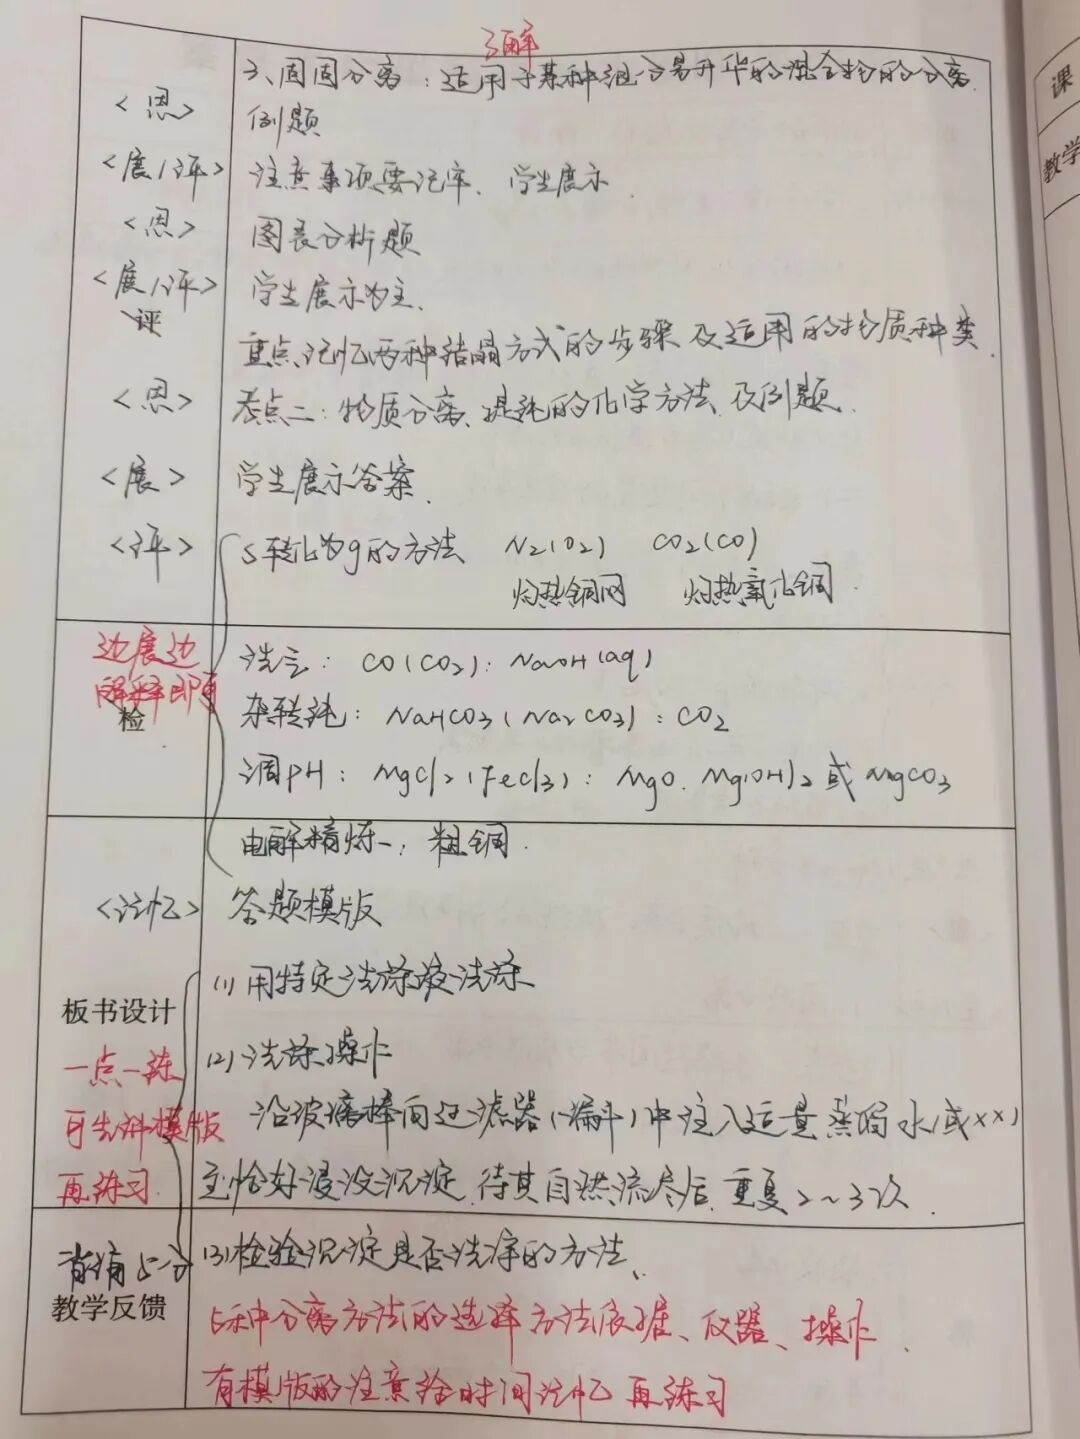 了解
三、固固分离：适用于某种组分易升华的混合物的分离.
<思> 例题
<展/评> 注意事项要记牢、学生展示.
<思> 图表分析题
<展/评> 学生展示为主.
评
重点记忆两种结晶方式的步骤及适用的物质种类.
<思> 考点二：物质分离、提纯的化学方法及例题.
<展> 学生展示答案.
<评> s转化为g的方法 N2(O2) CO2(CO)
灼热铜网 灼热氧化铜.
边展边 洗气： CO(CO2)：NaOH(aq)
解释即可
检 杂转纯：NaHCO3(Na2CO3)：CO2
调PH：MgCl2(FeCl3)：MgO、Mg(OH)2或MgCO3
电解精炼：粗铜.
<记忆> 答题模版
(1)用特定洗涤液洗涤
板书设计
一点一练 (2)洗涤操作
可先讲模版 沿玻璃棒向过滤器(漏斗)中注入适量蒸馏水(或××)
再练习. 至恰好浸没沉淀，待其自然流尽后，重复2~3次.
背诵5分 (3)检验沉淀是否洗净的方法、
教学反馈
5种分离方法的选择方法依据、仪器、操作.
有模版的注意给时间记忆 再练习
课
教学